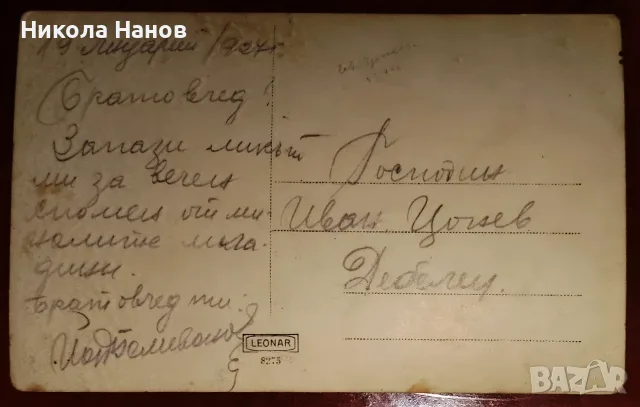 Никола Нанов
19 Януарий 1927 г.
Братовчед!
Запази ликът
ми за вечен
спомен от ми-
налите мла-
дини.
Братовчед ти:
Господин
Иван Цочев
Дебелец.
LEONAR
8275
bazar.bg